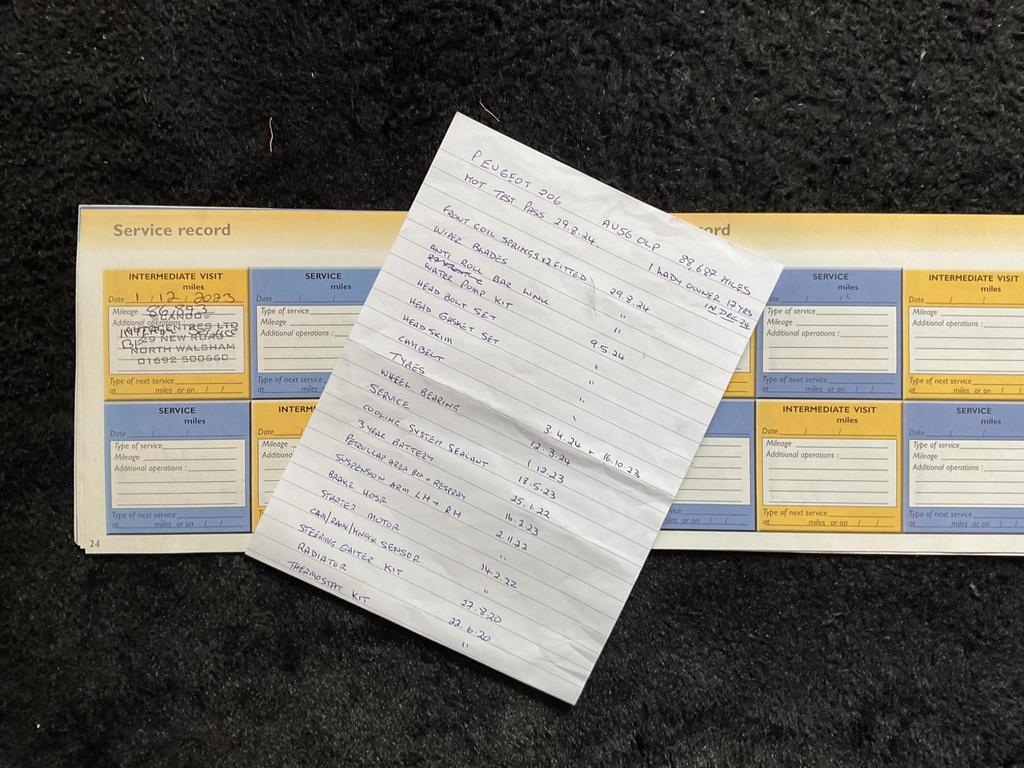 Service record
ord
INTERMEDIATE VISIT
miles
Date 1 / 12 / 2023
Mileage 86,893
Additional operations
INTERIM SERVICE
29 NEW ROAD
NORTH WALSHAM
01692 500660
Type of next service
at miles or on / /
SERVICE
miles
Date / /
Type of service
Mileage
Additional operations :
Type of next service
at miles
SERVICE
miles
Date / /
Type of service
Mileage
Additional operations :
Type of next service
at miles or on / /
INTERM
Date
Mileage
Additional
Type of n
at
24
PEUGEOT 206 AU56 OLP 88,687 MILES
MOT TEST PASS 29.8.24 1 LADY OWNER 17YRS
IN DEC 24
FRONT COIL SPRINGS x2 FITTED 29.8.24
WIPER BLADES "
ANTI ROLL BAR LINK "
WATER PUMP KIT 9.5.24
HEAD BOLT SET "
HEAD GASKET SET "
HEAD SKIM "
CAMBELT "
TYRES 3.4.24 + 16.10.23
WHEEL BEARING 12.3.24
SERVICE 1.12.23
COOLING SYSTEM SEALANT 18.5.23
3 YEAR BATTERY 25.1.22
PETROL CAP AREA BOX + RESPRAY 16.2.23
SUSPENSION ARM LH + RH 2.11.22
BRAKE HOSE "
STARTER MOTOR 14.2.22
CAM/RANK/KNOCK SENSOR "
STEERING GAITER KIT 27.8.20
RADIATOR 22.6.20
THERMOSTAT KIT "
SERVICE
miles
Date / /
Type of service
Mileage
Additional operations :
Type of next service
at miles or on / /
INTERMEDIATE VISIT
miles
Date / /
Mileage
Additional operations :
Type of next service
at miles or on / /
service
miles or on / /
INTERMEDIATE VISIT
miles
Date / /
Mileage
Additional operations :
Type of next service
at miles or on / /
SERVICE
miles
Date / /
Type of service
Mileage
Additional operations :
Type of next service
at miles or on / /